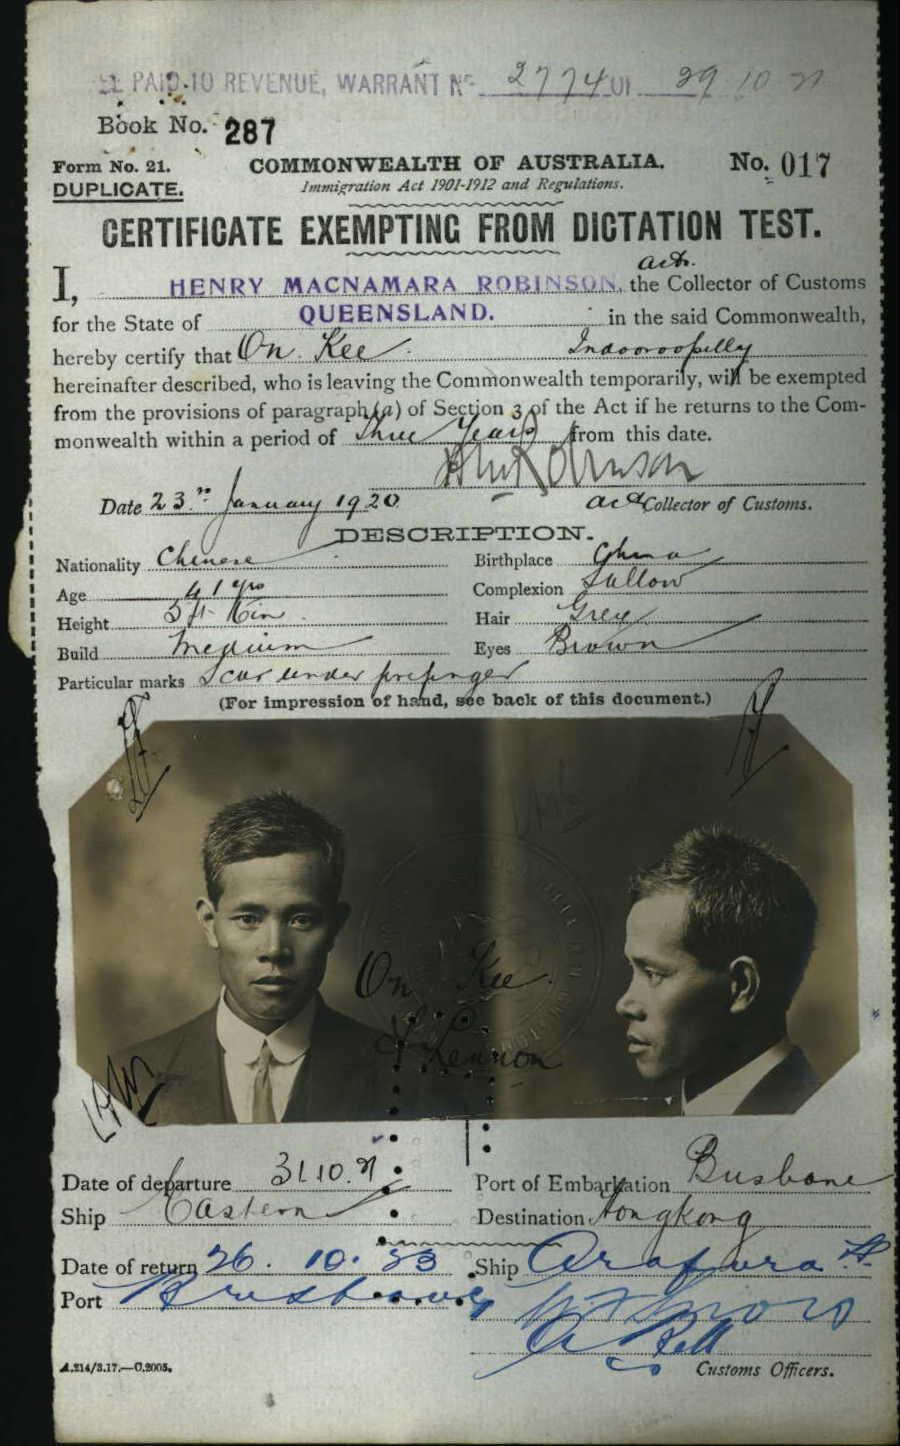 PAID TO REVENUE, WARRANT No 2774 01 29 10 21
Book No. 287
Form No. 21. COMMONWEALTH OF AUSTRALIA. No. 017
DUPLICATE. Immigration Act 1901-1912 and Regulations.
CERTIFICATE EXEMPTING FROM DICTATION TEST.
actg.
I, HENRY MACNAMARA ROBINSON, the Collector of Customs
for the State of QUEENSLAND. in the said Commonwealth,
hereby certify that On Kee Indooroopilly
hereinafter described, who is leaving the Commonwealth temporarily, will be exempted
from the provisions of paragraph (a) of Section 3 of the Act if he returns to the Com-
monwealth within a period of Three Years from this date.
Date 23rd January 1920 Collector of Customs.
DESCRIPTION.
Nationality Chinese Birthplace China
Age 41 yrs Complexion Sallow
Height 5 ft Hair Grey
Build Medium Eyes Brown
Particular marks Scar under
(For impression of hand, see back of this document.)
On Kee
Lennon
Date of departure 31.10.21 Port of Embarkation Brisbane
Ship Eastern Destination Hongkong
Date of return 26. 10. 23 Ship Arafura
Port Brisbane
Bell
A.214/3.17.—C.2005. Customs Officers.